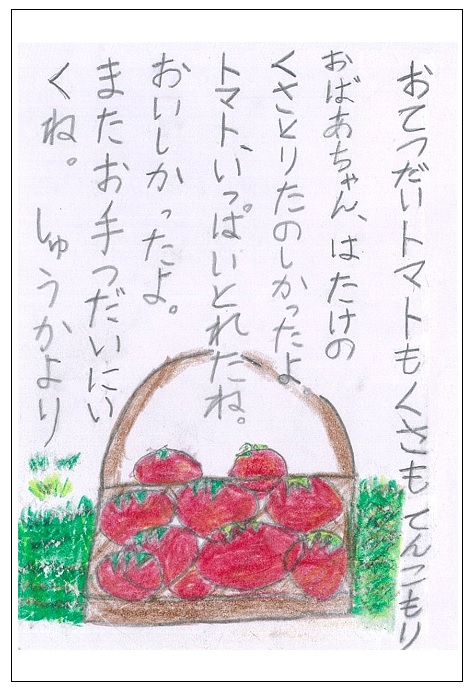 おてつだいトマトもくさもてんこもり
おばあちゃん、はたけの
くさとりたのしかったよ
トマト、いっぱいとれたね。
おいしかったよ。
またお手つだいにい
くね。 しゅうかより